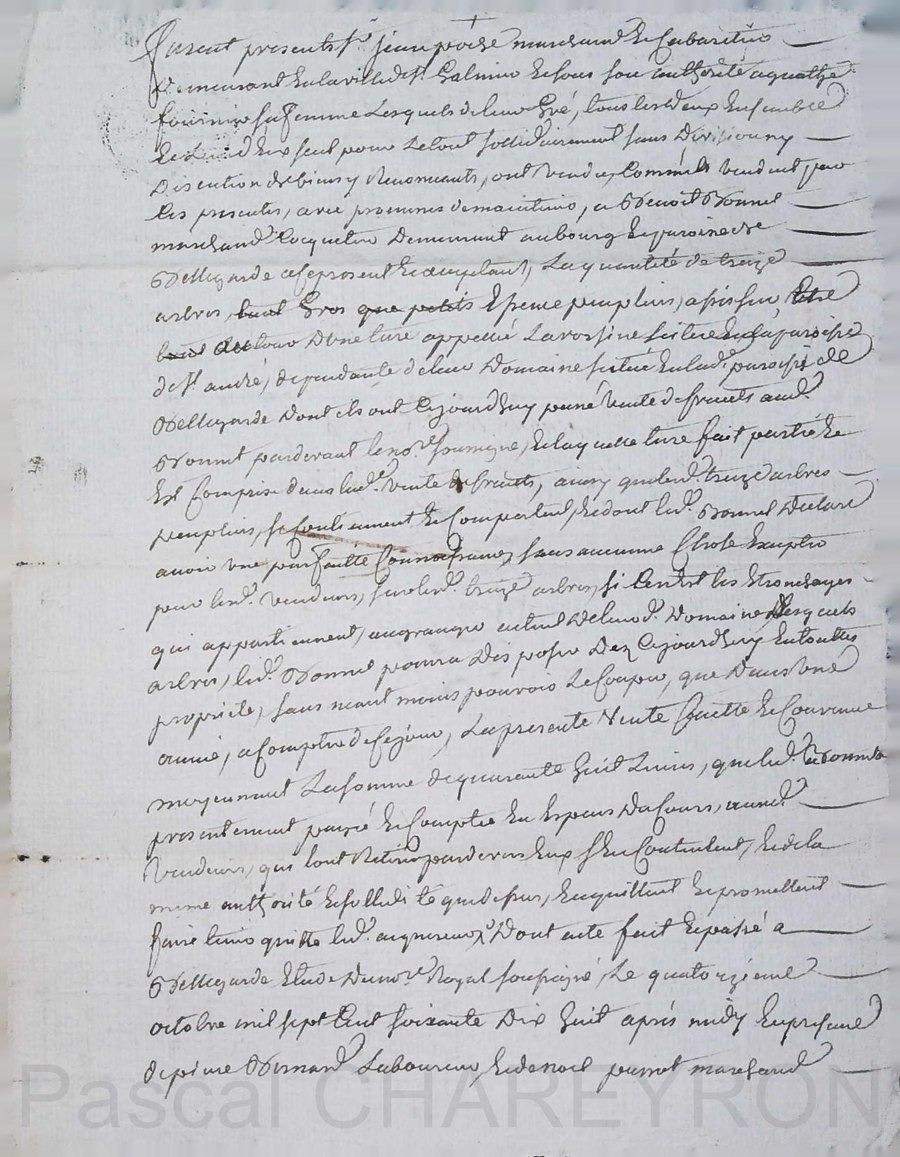 furent presents Sr jean poche marchand Et Cabaretier
Demeurant En la ville de St Galmier Et sous son authorité agathe
fournier sa femme Lesquels de leur Gré, tous les deux Ensemble
Et L'un d'Eux seul pour Le tout sollidairement sans Division ny
Discution de biens y Renonceants, ont vendu, Comme ils vendent par
les presentes, avec promesses de maintenir, a Benoit Bonnel
marchand Cocquetier Demeurant au bourg Et paroisse de
Bellegarde ici present Et acceptant, La quantité de treize
arbres, tant Gros que petits Essence peupliers, assis sur
tout autour D'une terre appellée La rossine scituée En la paroisse
de St andré, dependante de leur Domaine scitué En lad. paroisse de
Bellegarde Dont ils ont Cejourdhuy passé vente de fruits aud.
Bonnel pardevant le nore. soussigné, Et laquelle terre fait partie Et
Est Comprise dans lad. vente de fruits, ainsy que lesd. treize arbres
peupliers, se Contiennent Et Comportent, Et dont led. Bonnel Declare
avoir une parfaitte Connoissance, sans aucune Chose Excepter
pour lesd. vendeurs, sur lesd. treize arbres, si Ce n'est les Etronchages
qui appartiennent, au granger actuel de leurd. Domaine Desquels
arbres, led. Bonnel pourra Disposer Dez Cejourdhuy En toutes
proprieté, sans neant moins pouvoir Le Couper, que Dans une
année, a Compter de Ce jour, La presente vente faitte Et Convenue
moyennant La somme de quarante huit Livres, que led. Bonnel a
presentement payé Et Comptée En Especes Du Cours, auxd.
vendeurs, qui l'ont Retirée pardevers Eux s'En Contentent, Et de la
meme authorité Et sollidité que dessus, En quittent Et promettent
faire tenir quitte led. acquereur, Dont acte fait Et passé a
Bellegarde Etude Du nore. Royal soussigné, Le quatorzieme
octobre mil sept Cent soixante Dix huit après midy En presence
de pierre Bernard Laboureur, Et de noel perrot marchand
Pascal CHAREYRON